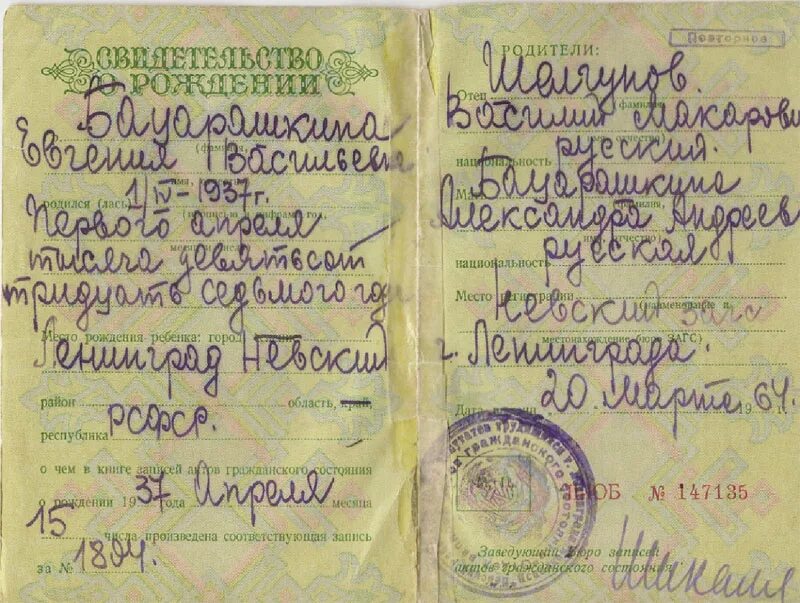 СВИДЕТЕЛЬСТВО
О РОЖДЕНИИ
Бацарашкина
(фамилия,
Евгения Васильевна
имя,
1/IV-1937г.
родился (лась
Первого апреля
тысяча девятьсот
тридцать седьмого года
Место рождения ребенка: город
Ленинград Невский
район область, край,
РСФСР.
республика
о чем в книге записей актов гражданского состояния
о рождении 19 37 года Апреля месяца
15 числа произведена соответствующая запись
за № 1894.
Повторное
РОДИТЕЛИ:
Шелгунов
Отец
фамилия,
Василий Макарови
отчество)
русский.
национальность
Бацарашкина
фамилия,
Александра Андреев
отчество)
русская.
национальность
Место регистрации (наименование и
Невский загс
местонахождение бюро ЗАГС)
г. Ленинграда.
20 Марта 64.
№ 147135
Заведующий бюро записей
актов гражданского состояния